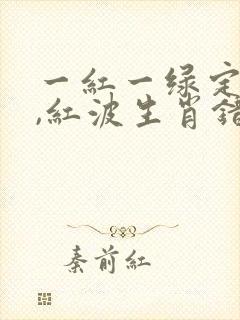 一紅一绿定
,紅波生肖錯
秦前紅